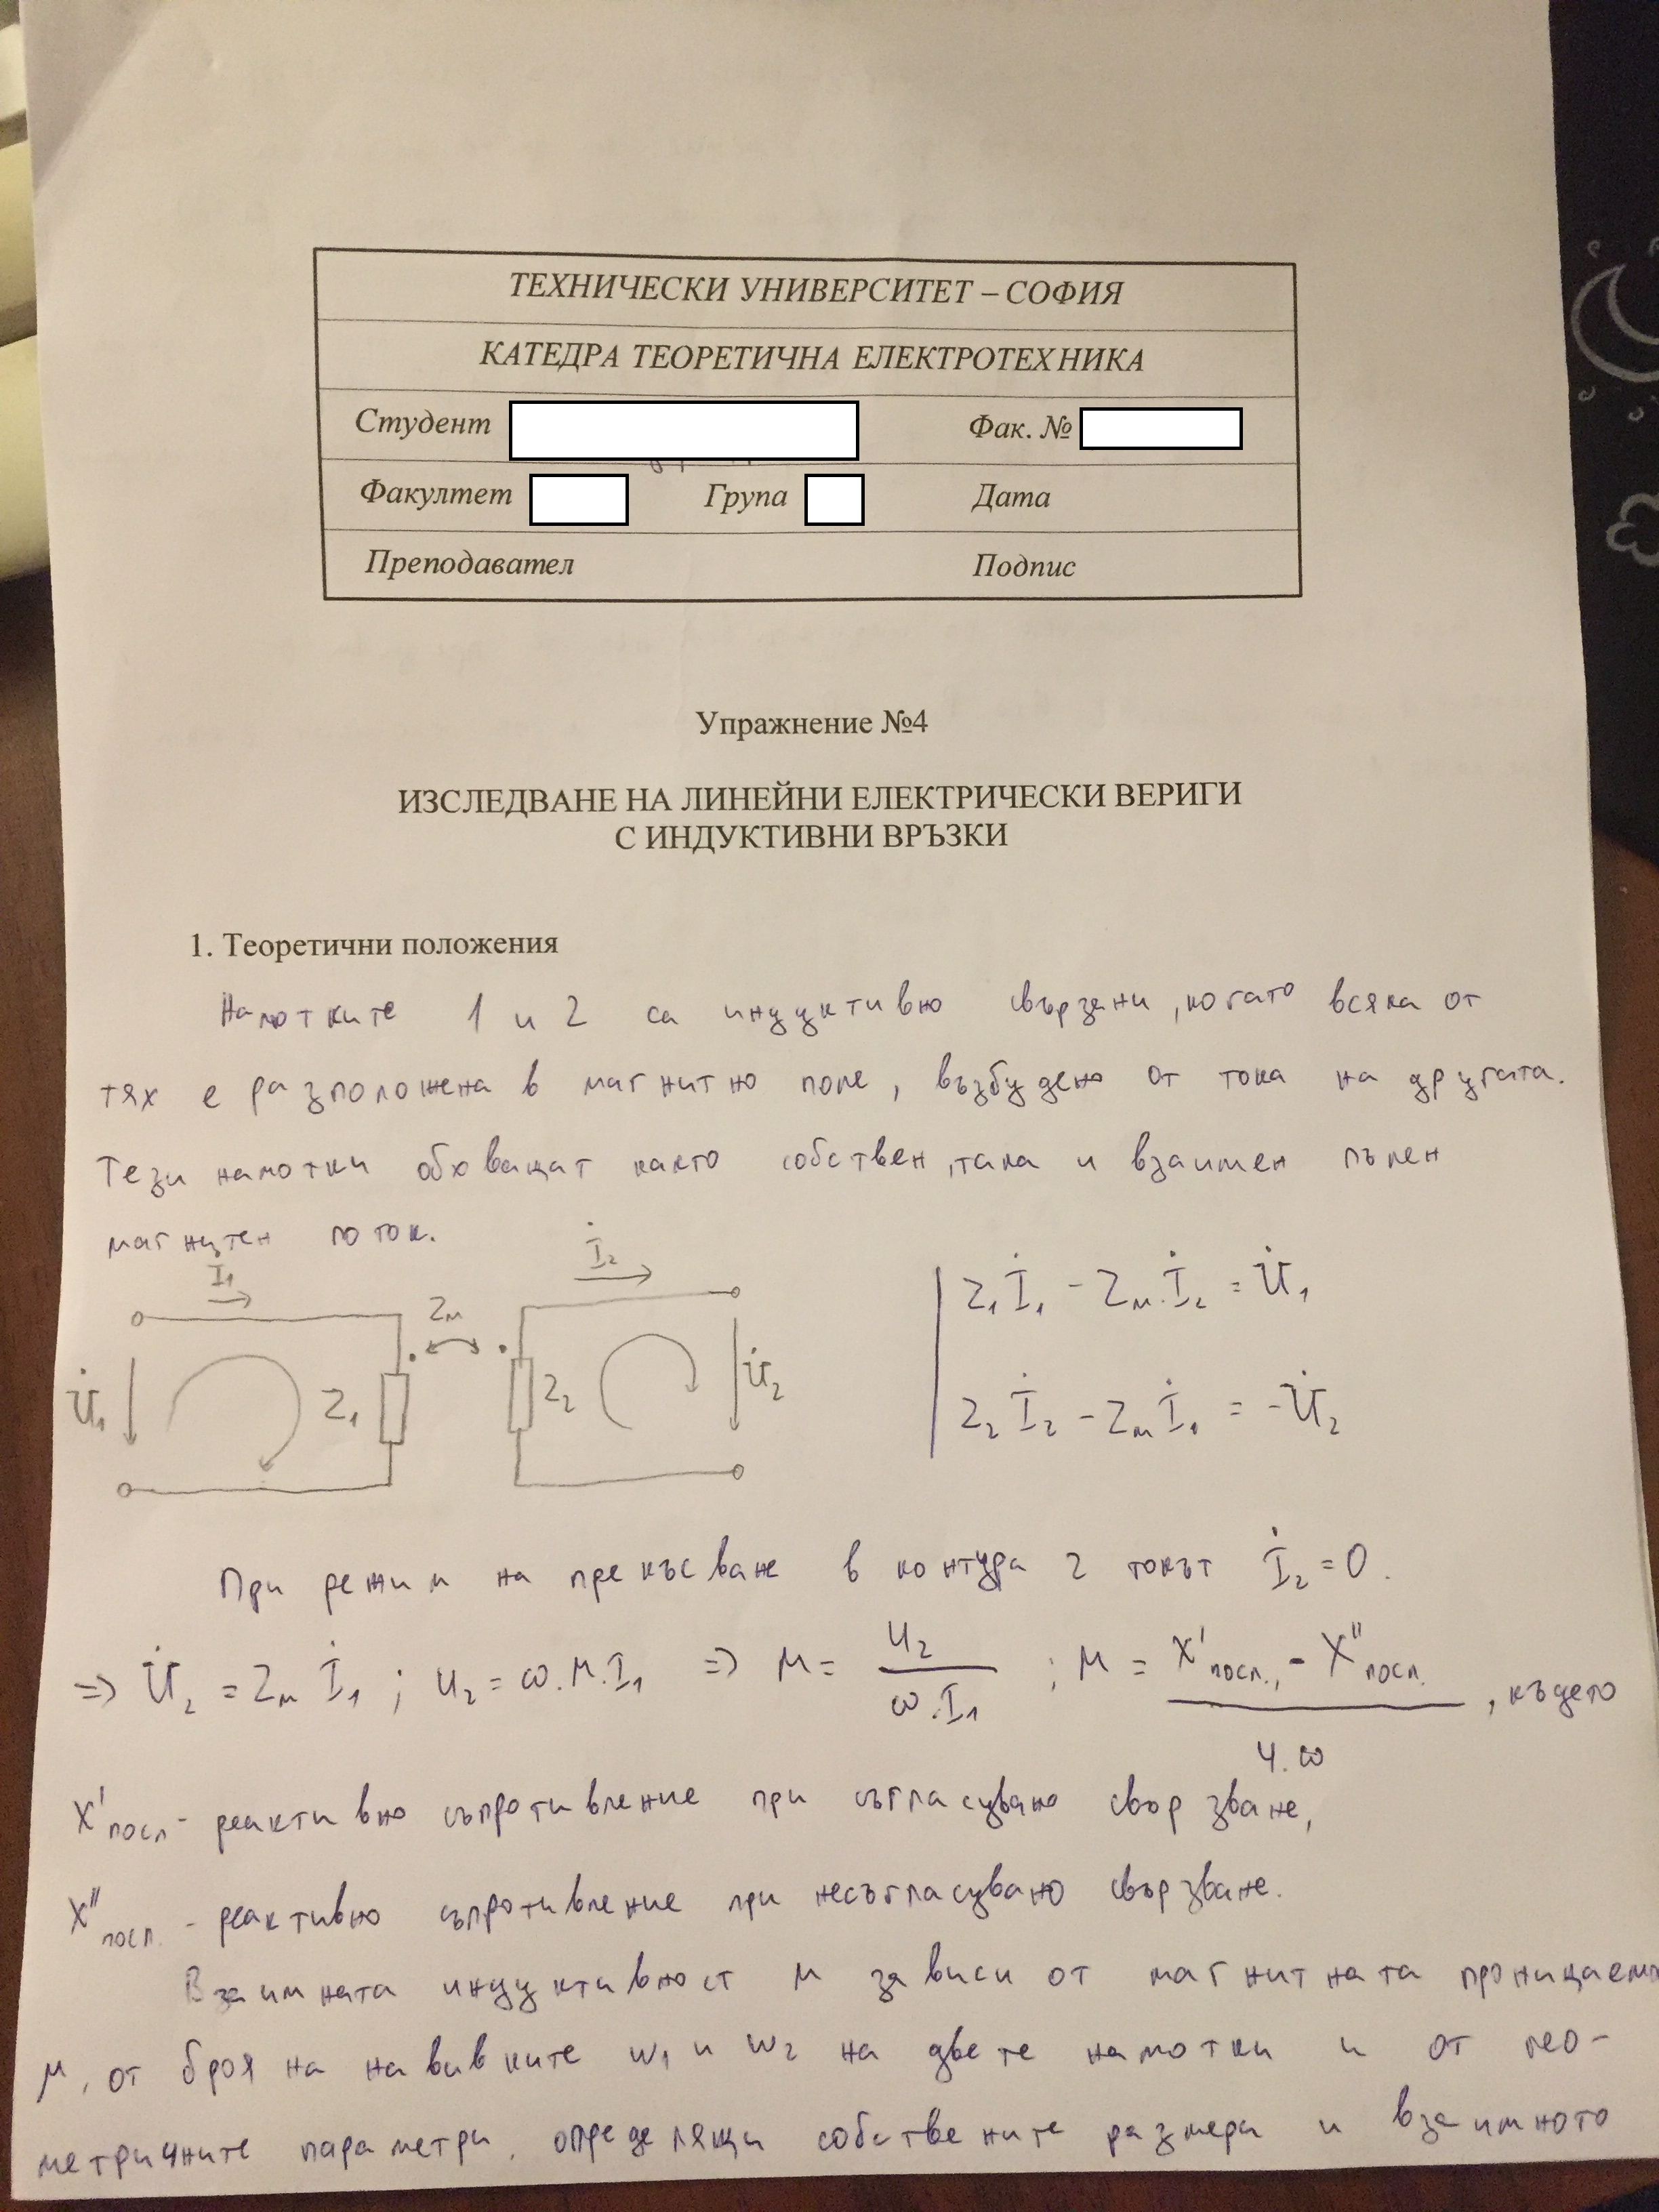 ТЕХНИЧЕСКИ УНИВЕРСИТЕТ – СОФИЯ
КАТЕДРА ТЕОРЕТИЧНА ЕЛЕКТРОТЕХНИКА
Студент Фак. №
Факултет Група Дата
Преподавател Подпис
Упражнение №4
ИЗСЛЕДВАНЕ НА ЛИНЕЙНИ ЕЛЕКТРИЧЕСКИ ВЕРИГИ
С ИНДУКТИВНИ ВРЪЗКИ
1. Теоретични положения
Намотките 1 и 2 са индуктивно свързани, когато всяка от
тях е разположена в магнитно поле, възбудено от тока на другата.
Тези намотки обхващат както собствен, така и взаимен пълен
магнитен поток.
İ₁ İ₂
Zм
U̇₁ Z₁ Z₂ U̇₂
Z₁İ₁ - Zм.İ₂ = U̇₁
Z₂İ₂ - Zмİ₁ = -U̇₂
При режим на прекъсване в контура 2 токът İ₂ = 0.
=> U̇₂ = Zм İ₁ ; U₂ = ω.M.I₁ => M = U₂ / ω.I₁ ; M = X'посл. - X''посл. / 4.ω , където
X'посл - реактивно съпротивление при съгласувано свързване,
X''посл. - реактивно съпротивление при несъгласувано свързване.
Взаимната индуктивност M зависи от магнитната проницаемо
μ, от броя на навивките w₁ и w₂ на двете намотки и от гео-
метричните параметри, определящи собствените размери и взаимното